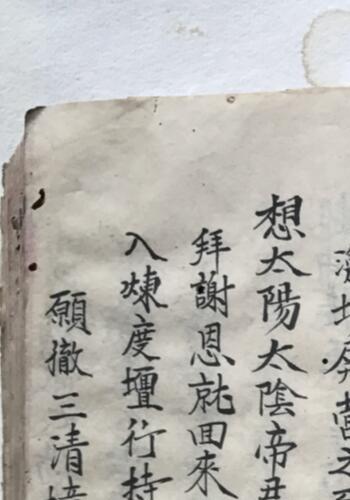 想太陽太陰帝君
拜謝恩就回來
入煉度壇行持
願撤三清境